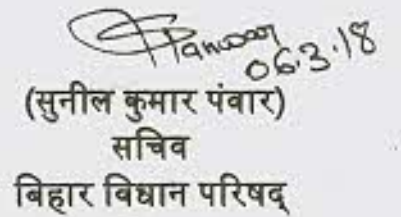 Panwar
06.3.18
(सुनील कुमार पंवार)
सचिव
बिहार विधान परिषद्